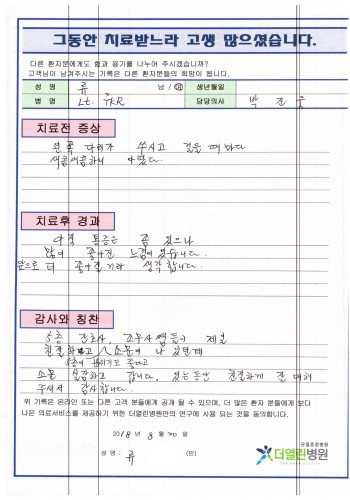 그동안 치료받느라 고생 많으셨습니다.
다른 환자분에게도 힘과 용기를 나누어 주시겠습니까?
고객님이 남겨주시는 기록은 다른 환자분들의 희망이 됩니다.
성 명 류 남 / 여 생년월일
병 명 Lt. TKR 담당의사 박
치료전 증상
왼쪽 다리가 쑤시고 걸을 때마다
새콤새콤하니 아팠다.
치료후 경과
아직 통증은 좀 있으나
많이 좋아진 느낌이 있습니다.
앞으로 더 좋아질거라 생각합니다.
감사와 칭찬
5층 간호사, 조무사 쌤들이 제일
친절하다고 소문이 나 있던데
5층이 분위기도 좋다고
소문 실감하고 갑니다. 있는동안 친절하게 잘 대해
주셔서 감사합니다.
위 기록은 온라인 또는 다른 고객 분들에게 공개 될 수 있으며, 더 많은 환자 분들에게 보다
나은 의료서비스를 제공하기 위한 더열린병원만의 연구에 사용 되는 것을 동의합니다.
2018 년 8 월 20 일
성 명 : 류 (인)
관절중점병원
더열린병원